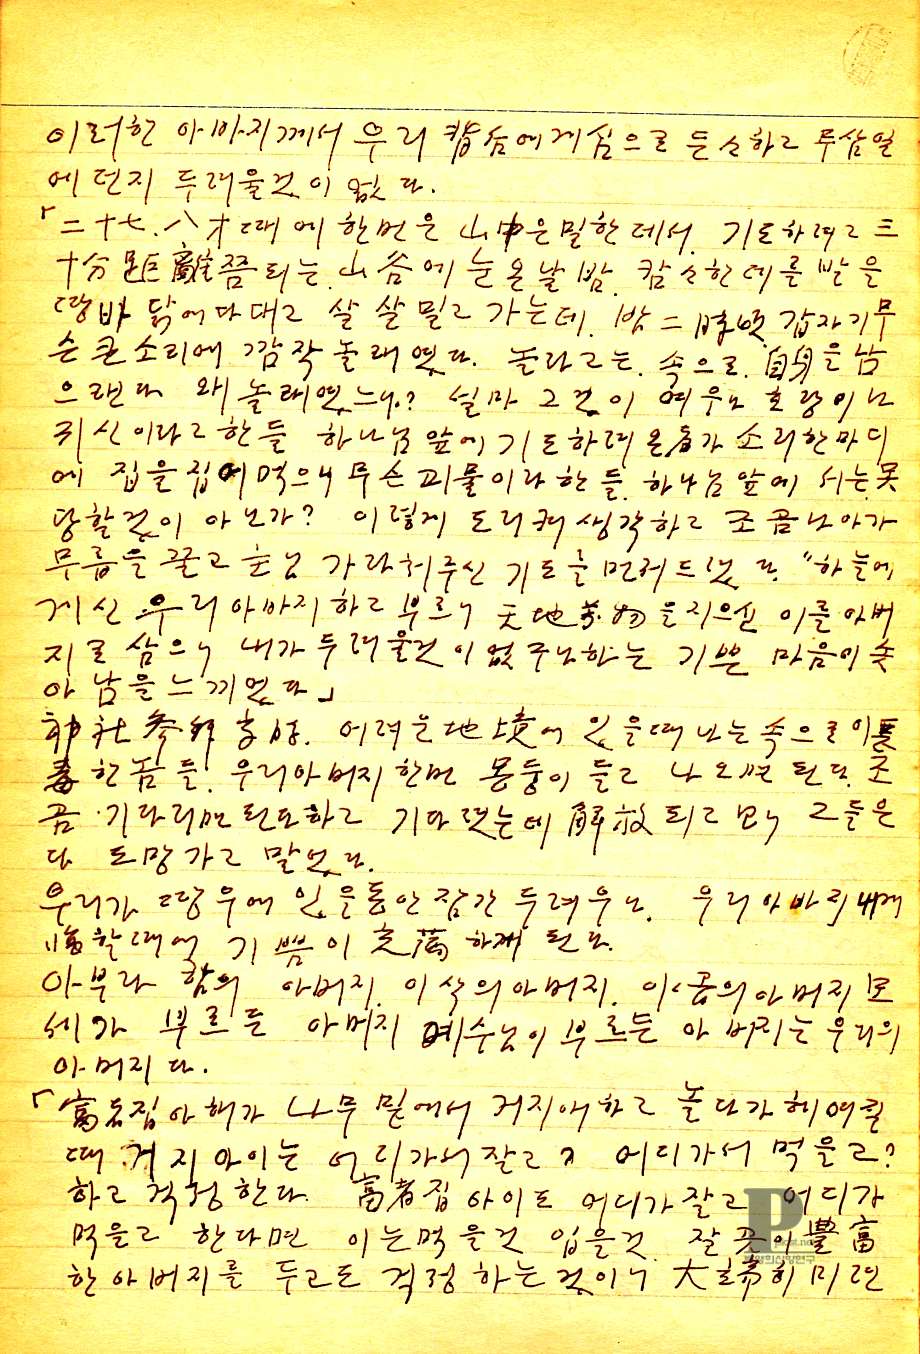 이러한 아바지께서 우리 背後에 게심으로 든소하고 무삼일
에던지 두려울것이 없다.
「二十七.八才 때에 한번은 山中은밀한데서. 기도하려고 三
十分 距離쯤되는 山谷에 눈온날밤. 캄소한데를 발을
땅바닭에다대고 살살밀고 가는데. 밤二時頃 갑자기무
슨큰소리에 깜작놀래였다. 놀라고는. 속으로. 自身을 남
으랜다 왜놀래였느냐? 설마 그것이 여우나 호랑이나
귀신이라고한들 하나님앞에 기도하려온者가 소리한마디
에 집을집어먹으니 무슨괴물이라한들. 하나님앞에 서는.못
당할것이 아닌가? 이렇게 도리켜생각하고 조곰나아가
무릎을 꿀고 主님 가라처주신 기도를먼저드렸다. "하늘에
게신 우리아바지하고 부르니 天地萬物을지으신 이를아버
지로 삼으니 내가두려울것이없구나하는 기쁜 마음이솟
아남을느끼었다」
神社參拜 어려운地境에 있을때 나는속으로이
毒한놈들. 우리아버지한번 몽둥이 들고 나오면 된다. 조
곰·기다리면된다하고 기다렸는데 解放되고보니 그들은
다 도망가고 말었다.
우리가 땅우에 있을동안잠간 두려우나. 우리아바지께
臨할때에 기쁨이 充滿하게 된다.
아부라함의 아버지. 이삭의아버지. 야곱의아버지 모
세가 부르든 아버지 예수님이 부르든 아버지는 우리의
아버지다.
「富者집아해가 나무밑에서 거지애하고 놀다가헤여질
때 거지아이는 어디가서잘고? 어디가서 먹을고?
하고 걱정한다. 富者집아이도 어디가잘고 어디가
먹을고 한다면 이는먹을것 입을것 잘곳이豊富
한아버지를 두고도 걱정하는것이니 大端히미련